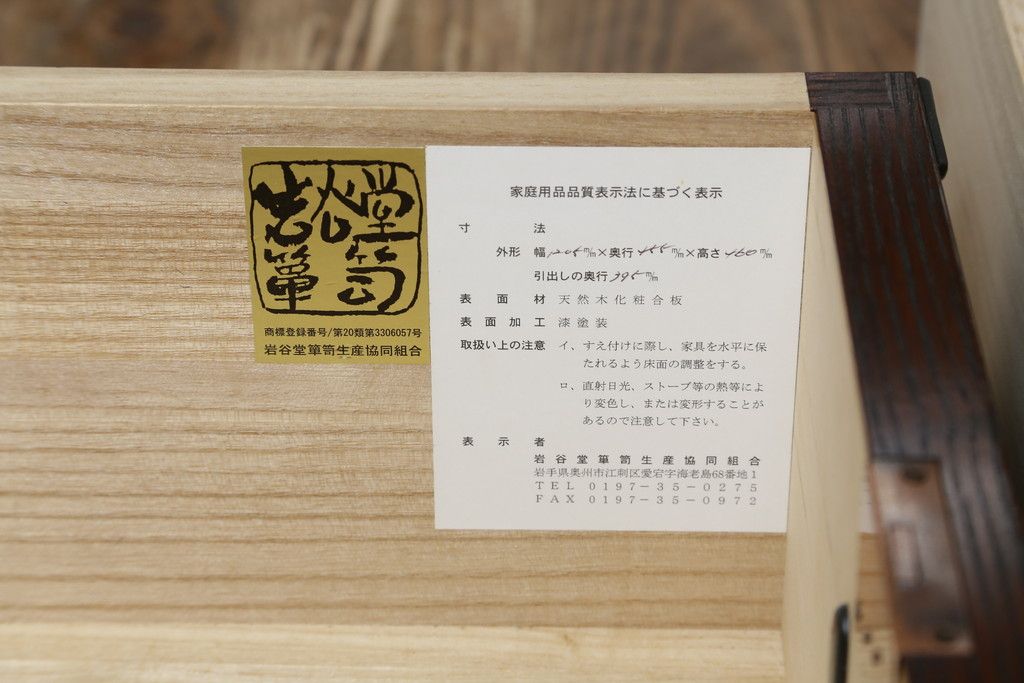 岩谷堂
箪笥
商標登録番号/第20類第3306057号
岩谷堂箪笥生産協同組合
家庭用品品質表示法に基づく表示
寸法
外形 幅 m/m×奥行 m/m×高さ 460 m/m
引出しの奥行 395 m/m
表面材 天然木化粧合板
表面加工 漆塗装
取扱い上の注意 イ、すえ付けに際し、家具を水平に保
たれるよう床面の調整をする。
ロ、直射日光、ストーブ等の熱等によ
り変色し、または変形することが
あるので注意して下さい。
表示者
岩谷堂箪笥生産協同組合
岩手県奥州市江刺区愛宕字海老島68番地1
TEL 0197-35-0275
FAX 0197-35-0972